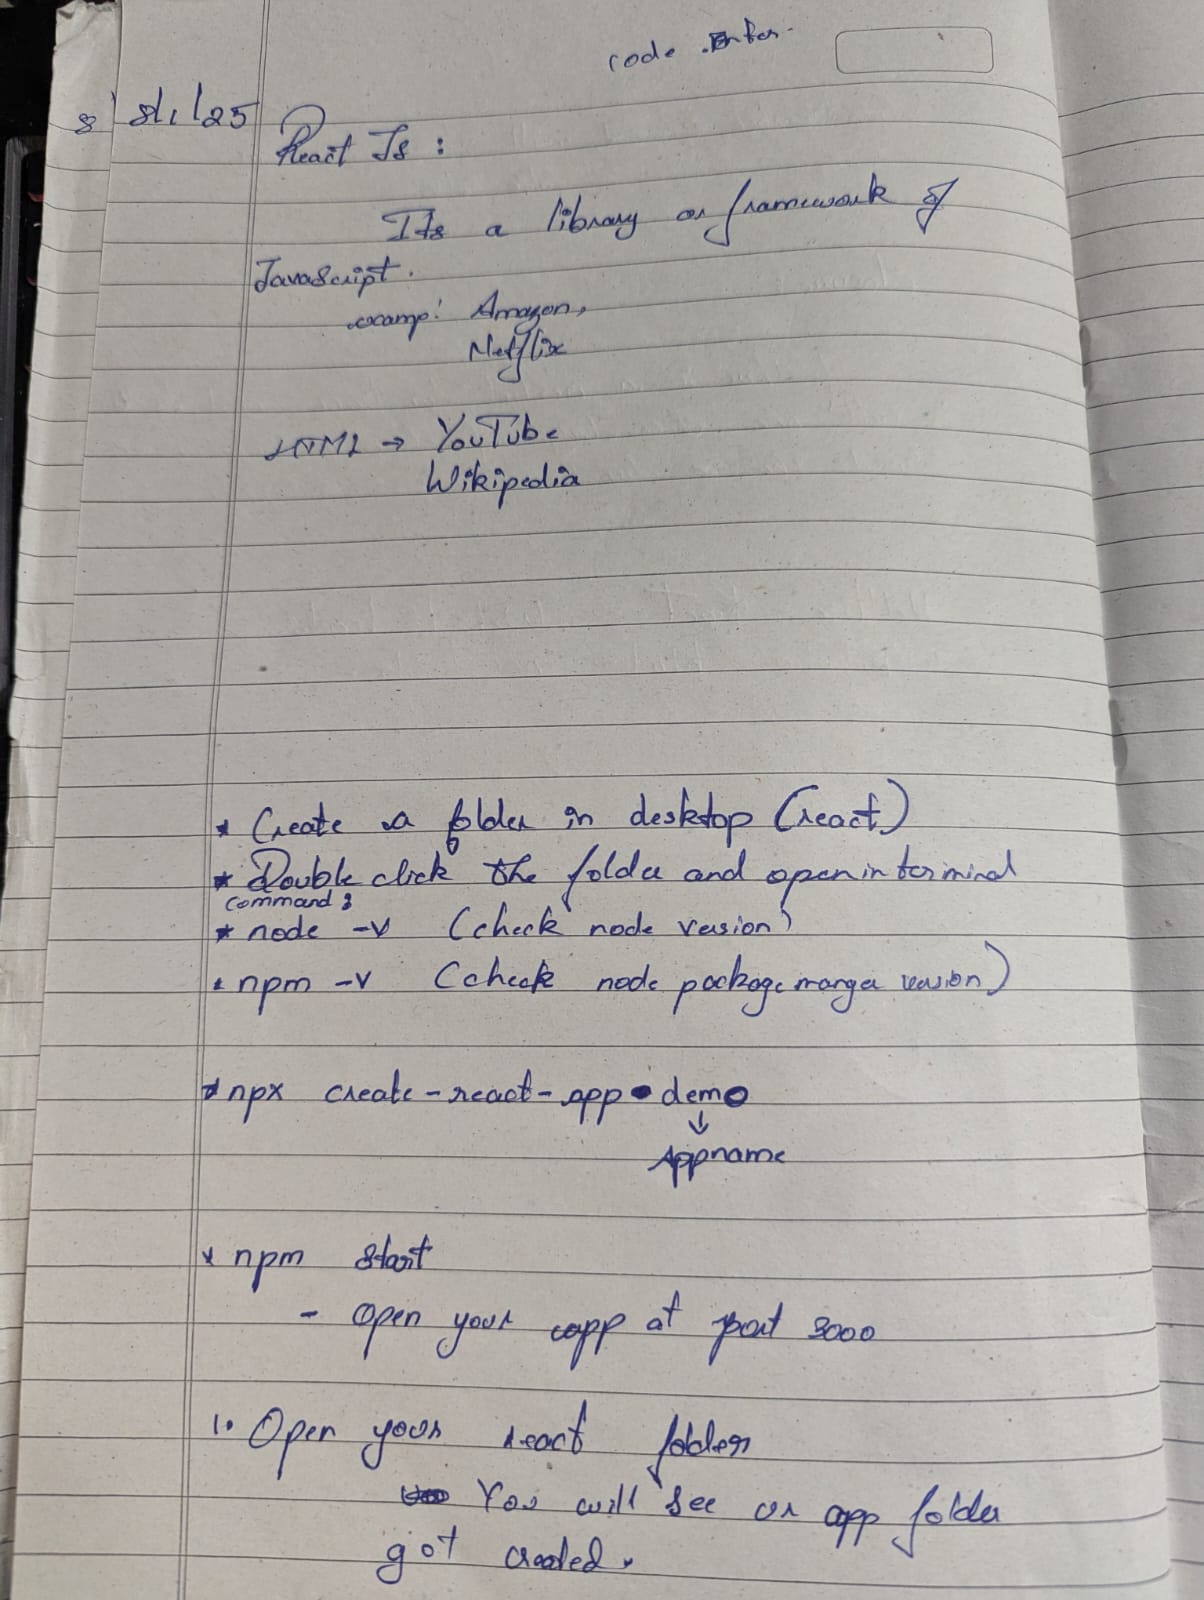 code Enter.
8 8/1/25
React Js :
Its a library or framework of
JavaScript.
examp: Amazon,
Netflix
HTML → YouTube
Wikipedia
* Create a folder in desktop (react)
* Double click the folder and open in terminal
command :
* node -v (check node version)
* npm -v (check node package manger version)
* npx create-react-app demo
↓
Appname
* npm start
- open your app at port 3000
1. Open your react folder
You will see an app folder
got created.